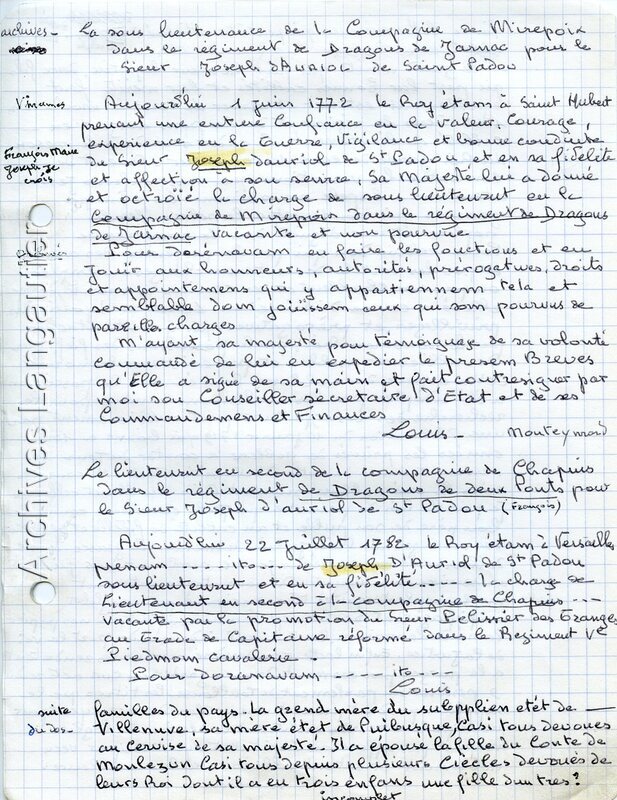 archives -
La sous lieutenance de la Compagnie de Mirepoix
dans le régiment de Dragons de Jarnac pour le
Sieur Joseph d'AURIOL de Saint Padou
Aujourd'hui 1 juin 1772 le Roy étam à Saint Hubert
prenant une entière Confiance en la valeur, Courage,
expérience en la Guerre, Vigilance et bonne conduite
François Marie
Joseph de
crois
du Sieur Joseph dauriol de St Padou et en sa fidélité
et affection à son service, Sa Majesté lui a donné
et octroïé la charge de sous lieutenant en la
Compagnie de Mirepoix dans le régiment de Dragons
de Jarnac vacante et non pourvue
Pour dorénavam en faire les fonctions et en
jouïr aux honneurs, autorités, prérogatives, droits
et appointemens qui y appartiennem tela et
semblable dom joüissem ceux qui som pourvus de
pareilles charges
M'ayant sa majesté pour témoignage de sa volonté
commandé de lui en expédier le présem Breves
qu'Elle a signé de sa main et fait contresigner par
moi son Conseiller secrétaire d'Etat et de ses
Commandemens et Finances
Louis - Monteynard
Le lieutenant en second de la compagnie de Chapuis
dans le régiment de Dragons de deux Ponts pour
le Sieur Joseph d'auriol de St Padou (François)
Aujourd'hui 22 Juillet 1782 le Roy étam à Versailles
prenam ---- ito -- de Joseph D'Auriol de St Padou
sous lieutenant et en sa fidélité ---- la charge de
Lieutenant en second à la compagnie de Chapuis ---
vacante par la promotion du Sieur Pelissier des Granges
au Grade de Capitaine réformé dans le Regiment Ve
Piedmom cavalerie.
Pour dorenavam ---- ito ----
Louis
suite
du dos -
familles du pays. La grand mère du supplien etét de —
Villenuve, sa mère étet de Puibusque, Casi tous devoues
au Cervise de sa majesté. Il a épousé la fille du Conte de
Moulezon Casi tous depuis plusieurs Ciècles devoués de
leurs Roi dont il a eu trois enfans une fille dun tres ?
incomplet
Archives Langautier